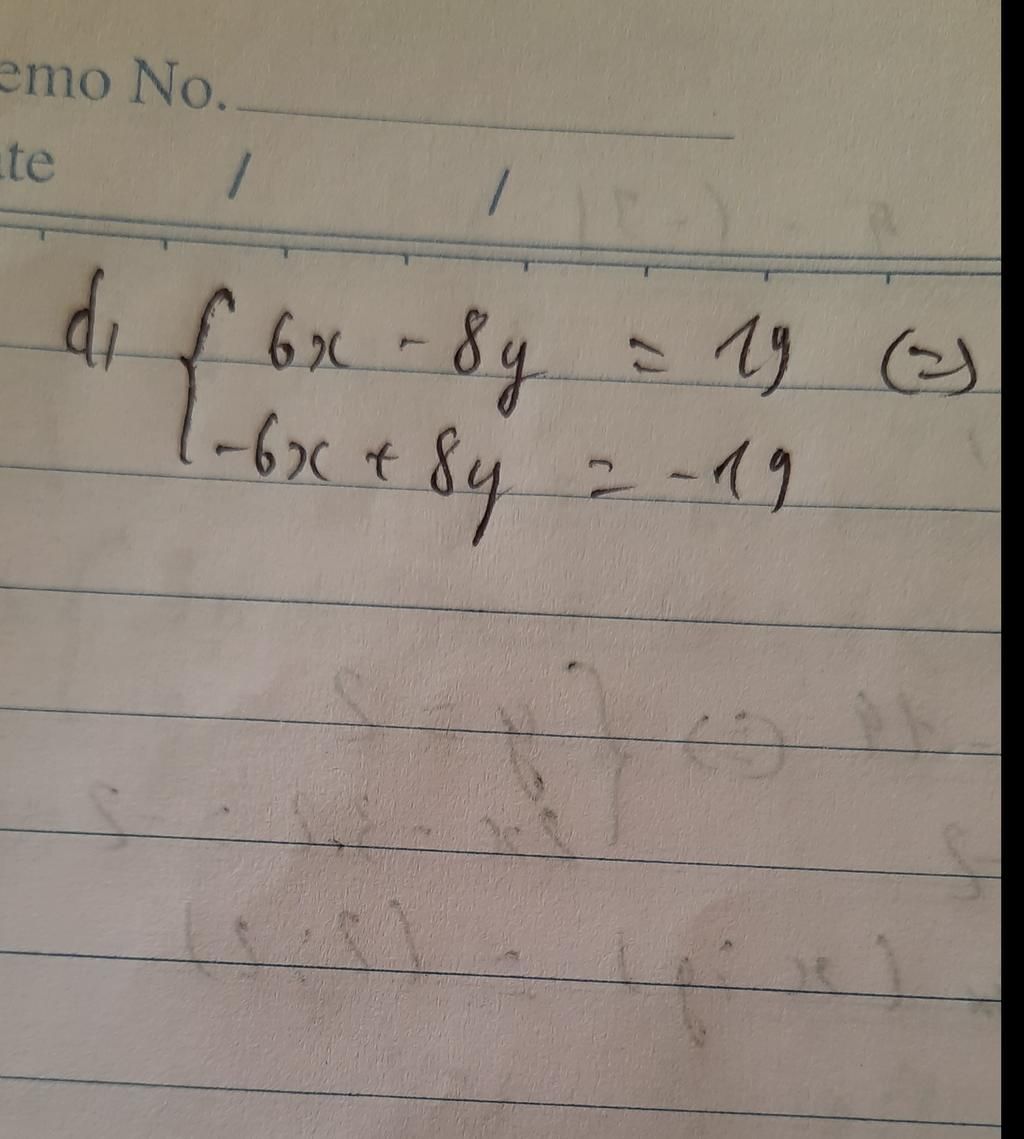 emo No.
ate / /
d, { 6x - 8y = 19 (=)
-6x + 8y = -19